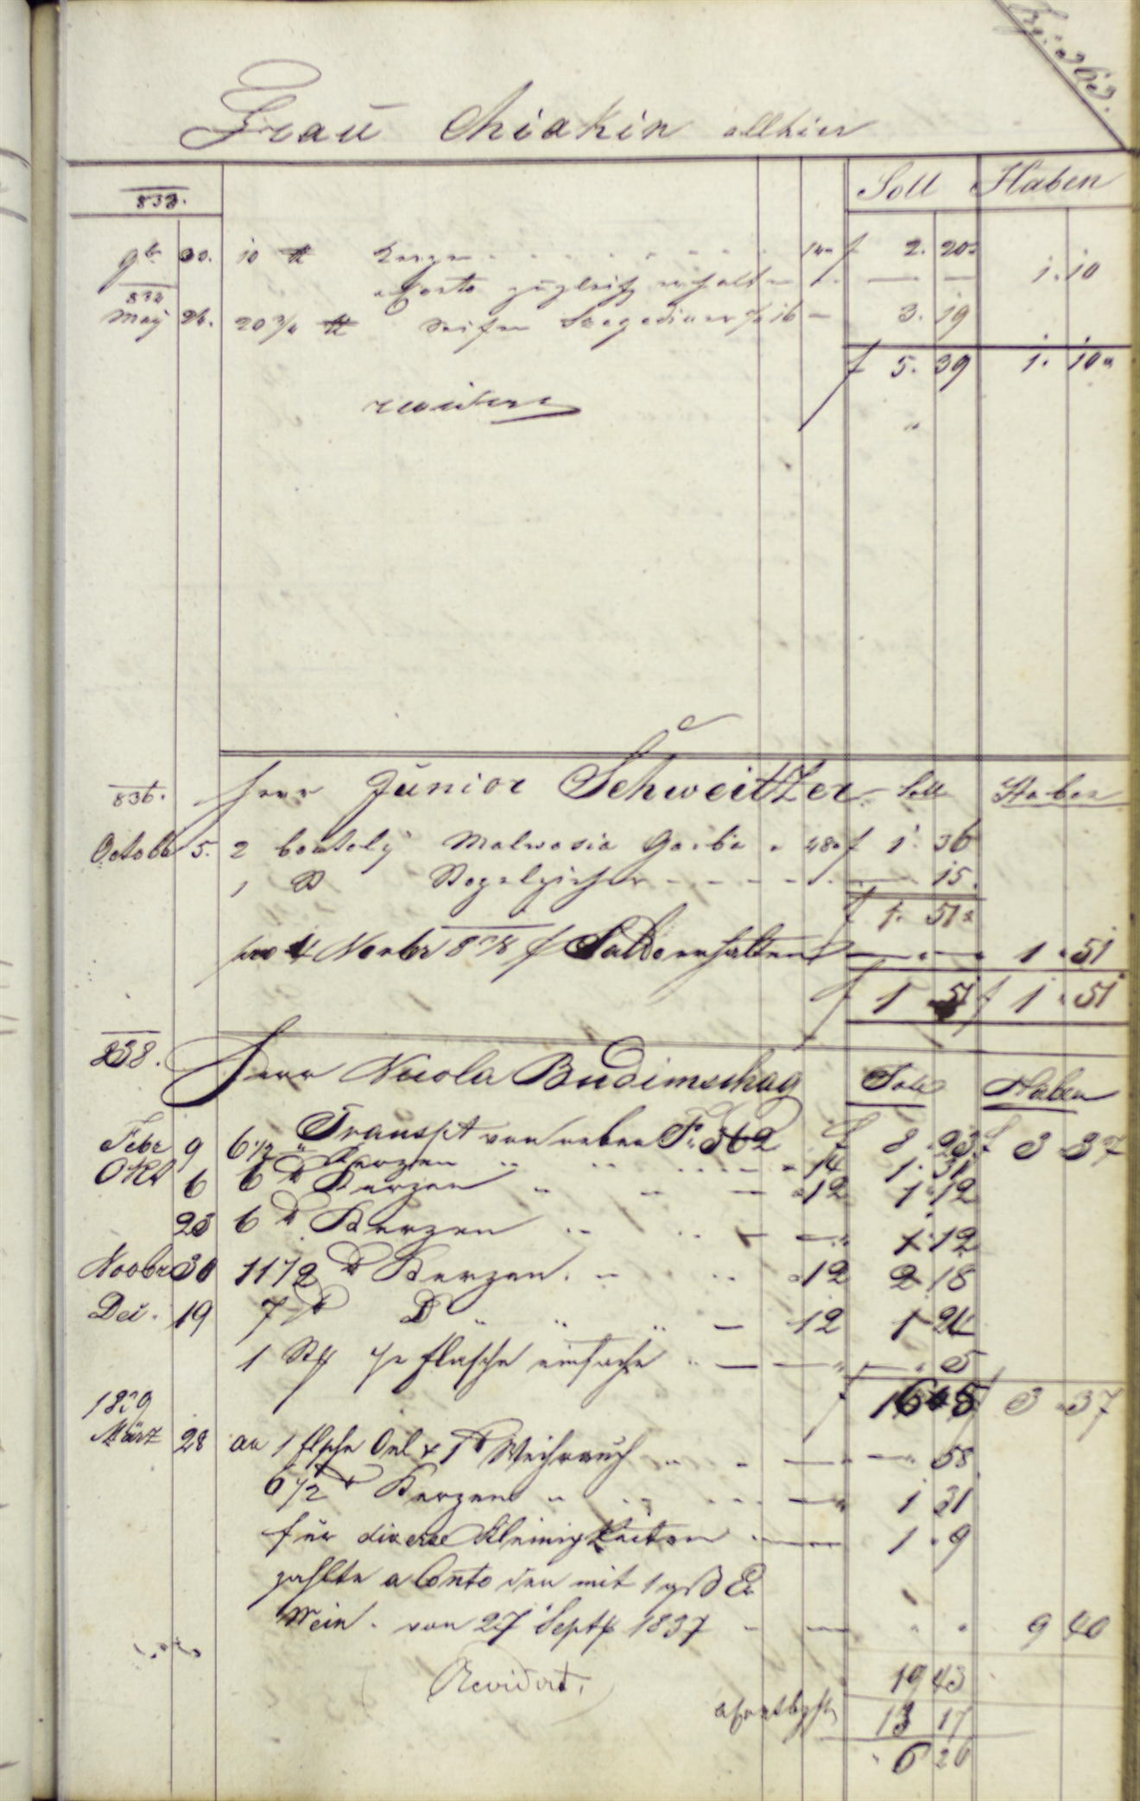 363.
Frau Chiakin allhier
Soll Haben
833.
9br 30. 10 ℔ Kerzen 14 f 2. 20
a Conto zugleich erhalten — — 1. 10
834
May 26. 20 3/4 ℔ Seifen Szegediner 16 — 3. 19
f 5. 39 1. 10
836. Herr Junior Schweitzer Soll Haben
October 5. 2 Malvasia Garbe 48 f 1. 36
1 D — 15.
f 1. 51
4 Novbr Saldo erhalten — 1 51
f 1 51 f 1 51
838. Herr Nicola Budimschag Soll Haben
Transpt von neben F. 362 f 8 23 f 3 37
Febr 9 6 1/2 ℔ Kerzen 14 1. 31
Okt 6 6 ℔ Kerzen 12 1 12
23 6 ℔ Kerzen 1 12
Novbr 30 11 1/2 ℔ Kerzen 12 2 18
Dei. 19 7 ℔ D 12 1 24
1 flasche einfache — 5
f 16 5 3 37
1839
März 28 an 1 flsche Oel & 1 ℔ Weihrauch — 58
6 1/2 ℔ Kerzen 1 31
für diverse Kleinigkeiten 1 9
zahlte a Conto den mit 1
Wein. von 27 Septr 1837 9 40
Revidirt.
19 43
13 17
6 26